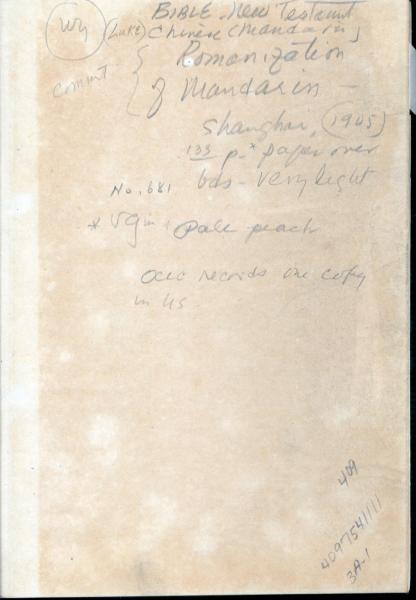 BIBLE. New Testament
(Luke) Chinese (Mandarin)
Romanization
comment
of Mandarin -
Shanghai, (1905)
133 p. * paper over
bds - very light
No. 681
* vgin, pale peach
OCLC records one copy
in US
409
4097541111
3A-1